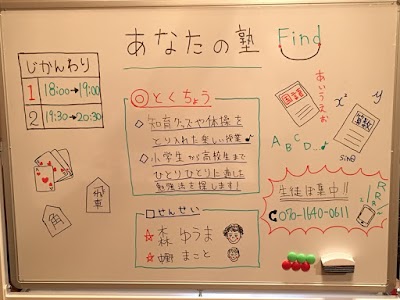 あなたの塾
Find
じかんわり
1 18:00→19:00
2 19:30→20:30
◎とくちょう
◇知育グッズや体操を
とり入れた楽しい授業♪
◇小学生から高校生まで
ひとりひとりに適した
勉強法を探します!
国語
あいうえお
算数
x²
y
A B C D...♪
sinθ
飛車
角
□せんせい
☆森 ゆうま
☆ まこと
生徒募集中!!
070-1640-0611
R R R